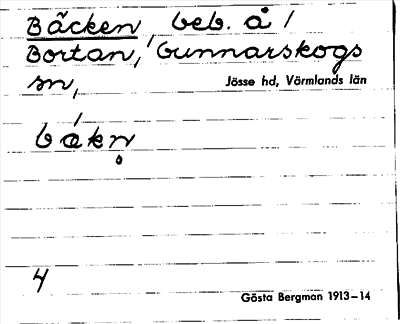 Bäcken beb. å
Bortan, Gunnarskogs
sn,
Jösse hd, Värmlands län
bǽkn̥
4
Gösta Bergman 1913–14